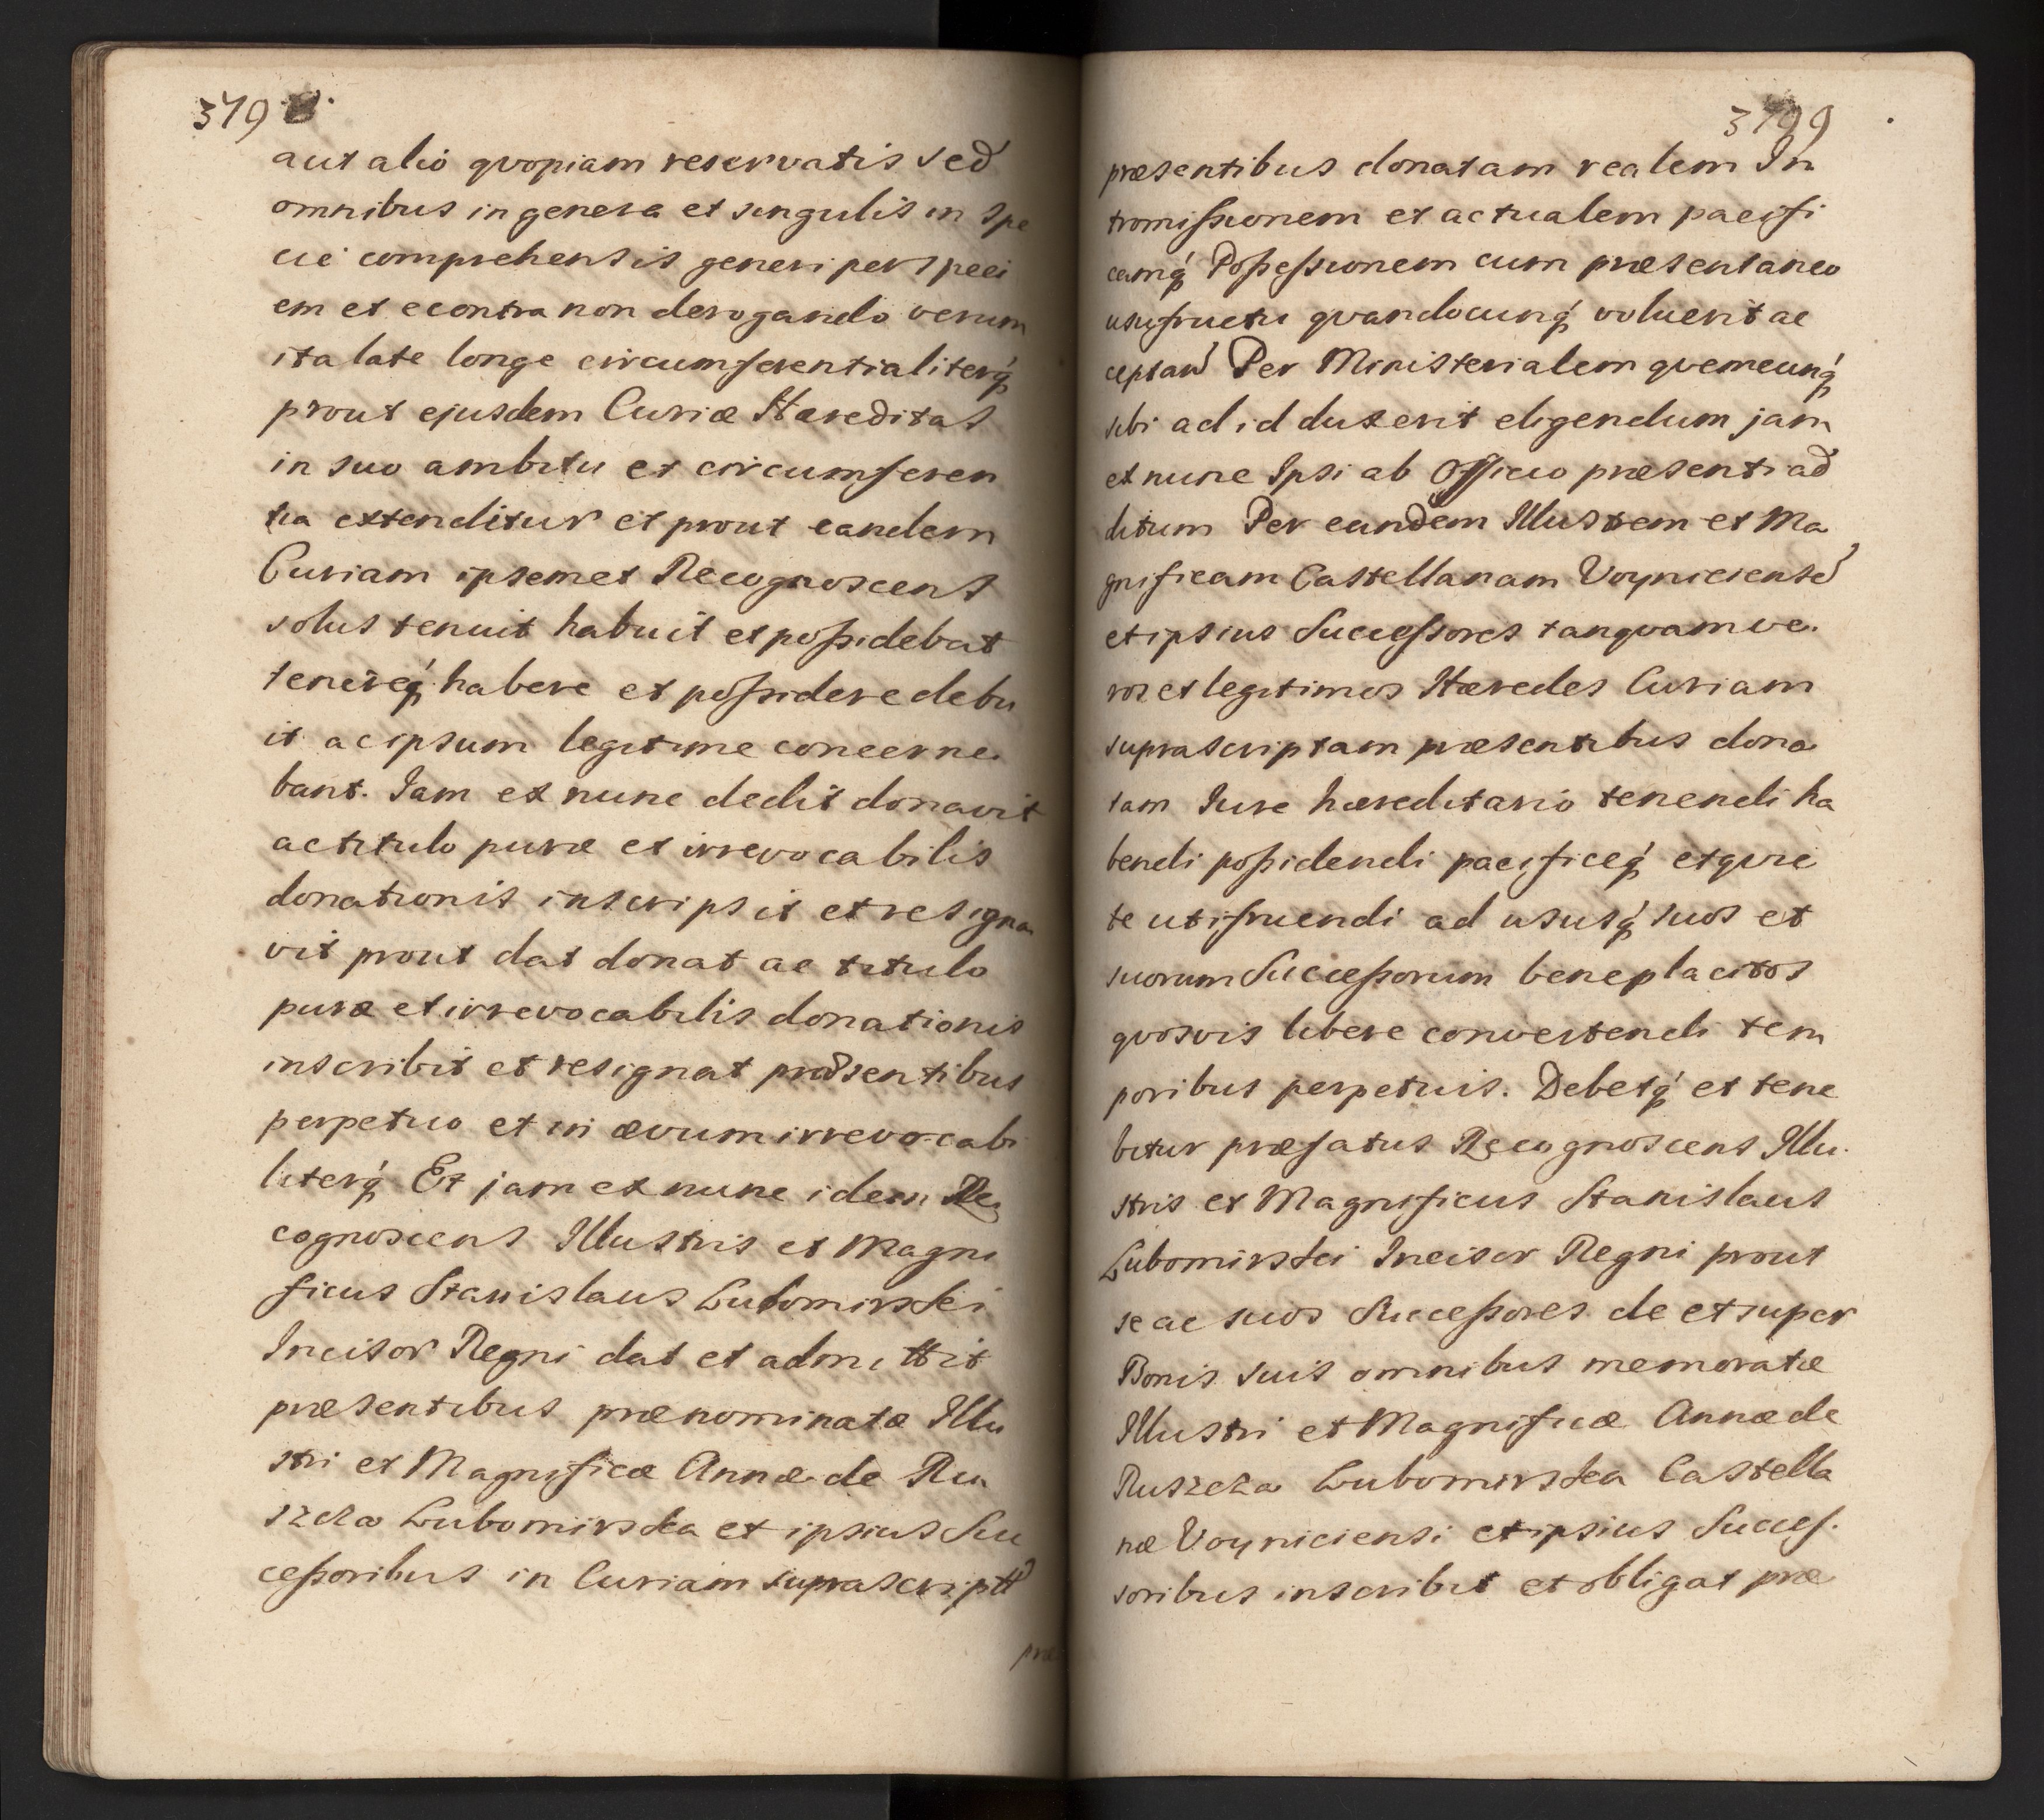 379
aut alio qvopiam reservatis sed
omnibus in genere et singulis in spe
cie comprehensis generi per speci
em et econtra non derogando verum
ita late longe circumferentialiterq́
prout ejusdem Curiæ Hæreditas
in suo ambitu et circumferen
tia extenditur et prout eandem
Curiam ipsemet Recognoscens
solus tenuit habuit et poßidebat
tenereq́ habere et poßidere debu
it ac ipsum legitime concerne
bant. Iam ex nunc dedit donavit
ac titulo puræ et irrevocabilis
donationis inscripsit et resigna
vit prout dat donat ac titulo
puræ et irrevocabilis donationis
inscribit et resignat præsentibus
perpetuo et in ævum irrevocabi
literq́ Et jam ex nunc idem Re
cognoscens Illustris et Magni
ficus Stanislaus Lubomirski
Incisor Regni dat et admittit
præsentibus prænominatæ Illu
stri et Magnificæ Annæ de Ru
szcza Lubomirska et ipsius Suc
ceßoribus in Curiam suprascriptã
præ
præsentibus donatam realem In
tromißionem et actualem pacifi
camq́ Poßeßionem cum præsentaneo
usufructu qvandocunq́ voluerit ac
ceptan̄ Per Ministerialem qvemcunq́
sibi ad id duxerit eligendum jam
ex nunc Ipsi ab Officio præsenti ad
ditum Per eandem Illustrem et Ma
gnificam Castellanam Voyniciens̄
et ipsius Succeßores tanqvam ve
ros et legitimos Hæredes Curiam
suprascriptam præsentibus dona
tam Iure hæreditario tenendi ha
bendi poßidendi pacificeq́ et qvie
te utifruendi ad ususq́ suos et
suorum Succeßorum beneplacitos
qvosvis libere convertendi tem
poribus perpetuis. Debetq́ et tene
bitur præfatus Recognoscens Illu
stris et Magnificus Stanislaus
Lubomirski Incisor Regni prout
se ac suos Succeßores de et super
Bonis suis omnibus memoratæ
Illustri et Magnificæ Annæ de
Ruszcza Lubomirska Castella
næ Voyniciensi et ipsius Succes
soribus inscribit et obligat præ